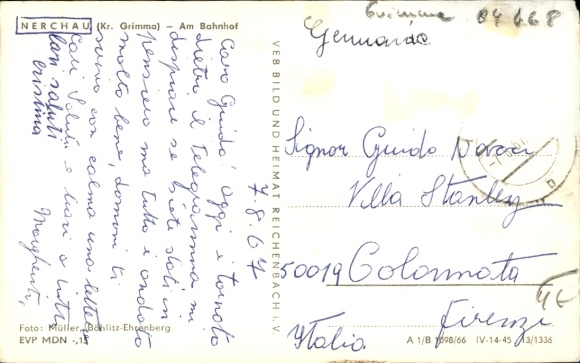 NERCHAU (Kr. Grimma) — Am Bahnhof
Grimma 04668
Germania
7.8.67
Caro Guido, oggi è tornato
dietro il telegramma mi
dispiace se siete stati in
pensiero ma tutto è andato
molto bene, domani ti
scrivo con calma una lettera
Cari Saluti e baci a tutti
Margherita
Cari saluti
Cristina
VEB BILD UND HEIMAT REICHENBACH I. V.
Signor Guido
Villa Stanley
50019 Colonnata
Firenze
Italia
Foto: Müller, Böhlitz-Ehrenberg
EVP MDN -,15
A 1/B 1098/66 IV-14-45 13/1336